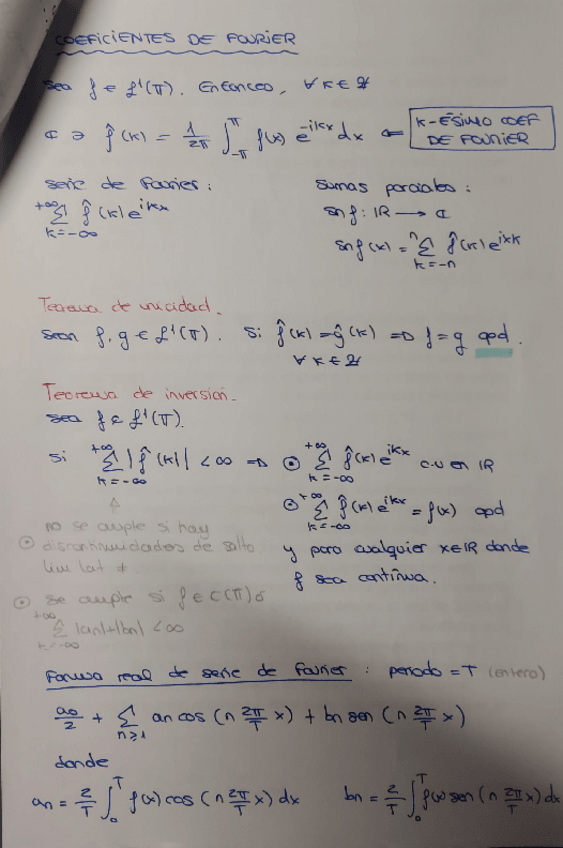 COEFICIENTES DE FOURIER
Sea f ∈ L¹(π). Entonces, ∀ k ∈ ℤ
ℂ ∋ f̂(k) = 1/2π ∫_{-π}^{π} f(x) e^{-ikx} dx ⇐ K-ÉSIMO COEF DE FOURIER
serie de Fourier: Sumas parciales:
+∞∑k=-∞ f̂(k) e^{ikx} Snf: ℝ → ℂ
Snf(x) = n∑k=-n f̂(k) e^{ixk}
Teorema de unicidad.
Sean f, g ∈ L¹(π). Si f̂(k) = ĝ(k) ⇒ f = g cpd.
∀ k ∈ ℤ
Teorema de inversión.
Sea f ∈ L¹(π).
Si +∞∑k=-∞ |f̂(k)| < ∞ ⇒ ⊙ +∞∑k=-∞ f̂(k) e^{ikx} c.u en ℝ
⊙ +∞∑k=-∞ f̂(k) e^{ikx} = f(x) cpd
y para cualquier x∈ℝ donde
f sea continua.
no se cumple si hay
⊙ discontinuidades de salto
lim lat ≠
⊙ se cumple si f ∈ C(π) ó
+∞∑k=-∞ |an|+|bn| < ∞
Forma real de serie de Fourier: periodo = T (entero)
a0/2 + ∑n≥1 an cos (n 2π/T x) + bn sen (n 2π/T x)
donde
an = 2/T ∫_0^T f(x) cos (n 2π/T x) dx bn = 2/T ∫_0^T f(x) sen (n 2π/T x) dx